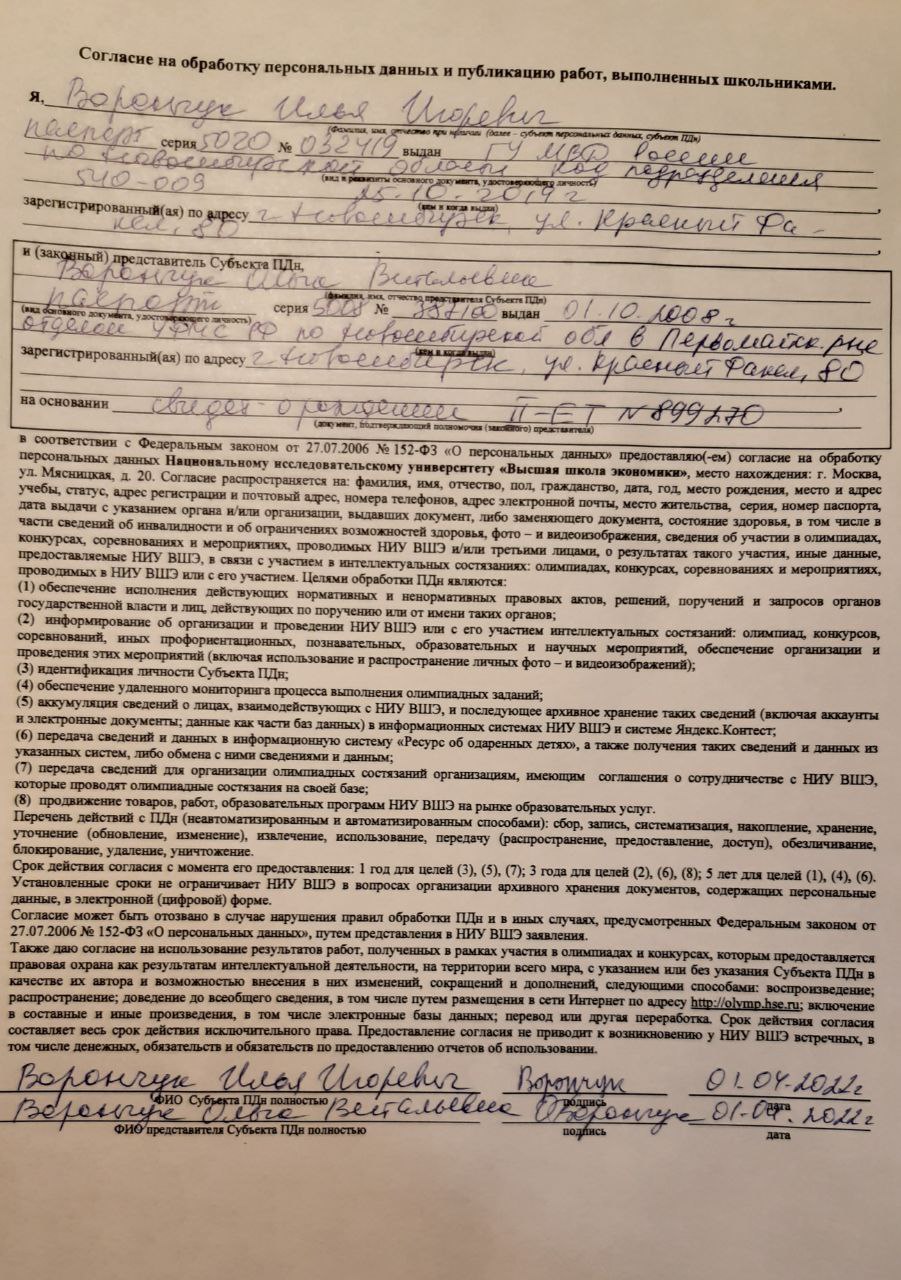 Согласие на обработку персональных данных и публикацию работ, выполненных школьниками.
Я, Ворончук Илья Игоревич
(Фамилия, имя, отчество при наличии (далее – субъект персональных данных, субъект ПДн)
паспорт серия 5020 № 032419 выдан ГУ МВД России
по Новосибирской области код подразделения
(вид и реквизиты основного документа, удостоверяющего личность)
540-009 25.10.2019 г
(кем и когда выдан)
зарегистрированный(ая) по адресу г. Новосибирск, ул. Красный Фа-
кел, 80
и (законный) представитель Субъекта ПДн,
Ворончук Ольга Витальевна
(фамилия, имя, отчество представителя Субъекта ПДн)
паспорт серия № выдан 01.10.2008 г
(вид основного документа, удостоверяющего личность)
отделом УФМС РФ по Новосибирской обл в Первомайск. р-не
(кем и когда выдан)
зарегистрированный(ая) по адресу г. Новосибирск, ул. Красный Факел, 80
на основании свидет. о рождении II-ЕТ N
(документ, подтверждающий полномочия (законного) представителя)
в соответствии с Федеральным законом от 27.07.2006 № 152-ФЗ «О персональных данных» предоставляю(-ем) согласие на обработку
персональных данных Национальному исследовательскому университету «Высшая школа экономики», место нахождения: г. Москва,
ул. Мясницкая, д. 20. Согласие распространяется на: фамилия, имя, отчество, пол, гражданство, дата, год, место рождения, место и адрес
учебы, статус, адрес регистрации и почтовый адрес, номера телефонов, адрес электронной почты, место жительства, серия, номер паспорта,
дата выдачи с указанием органа и/или организации, выдавших документ, либо заменяющего документа, состояние здоровья, в том числе в
части сведений об инвалидности и об ограничениях возможностей здоровья, фото – и видеоизображения, сведения об участии в олимпиадах,
конкурсах, соревнованиях и мероприятиях, проводимых НИУ ВШЭ и/или третьими лицами, о результатах такого участия, иные данные,
предоставляемые НИУ ВШЭ, в связи с участием в интеллектуальных состязаниях: олимпиадах, конкурсах, соревнованиях и мероприятиях,
проводимых в НИУ ВШЭ или с его участием. Целями обработки ПДн являются:
(1) обеспечение исполнения действующих нормативных и ненормативных правовых актов, решений, поручений и запросов органов
государственной власти и лиц, действующих по поручению или от имени таких органов;
(2) информирование об организации и проведении НИУ ВШЭ или с его участием интеллектуальных состязаний: олимпиад, конкурсов,
соревнований, иных профориентационных, познавательных, образовательных и научных мероприятий, обеспечение организации и
проведения этих мероприятий (включая использование и распространение личных фото – и видеоизображений);
(3) идентификация личности Субъекта ПДн;
(4) обеспечение удаленного мониторинга процесса выполнения олимпиадных заданий;
(5) аккумуляция сведений о лицах, взаимодействующих с НИУ ВШЭ, и последующее архивное хранение таких сведений (включая аккаунты
и электронные документы; данные как части баз данных) в информационных системах НИУ ВШЭ и системе Яндекс.Контест;
(6) передача сведений и данных в информационную систему «Ресурс об одаренных детях», а также получения таких сведений и данных из
указанных систем, либо обмена с ними сведениями и данным;
(7) передача сведений для организации олимпиадных состязаний организациям, имеющим соглашения о сотрудничестве с НИУ ВШЭ,
которые проводят олимпиадные состязания на своей базе;
(8) продвижение товаров, работ, образовательных программ НИУ ВШЭ на рынке образовательных услуг.
Перечень действий с ПДн (неавтоматизированным и автоматизированным способами): сбор, запись, систематизация, накопление, хранение,
уточнение (обновление, изменение), извлечение, использование, передачу (распространение, предоставление, доступ), обезличивание,
блокирование, удаление, уничтожение.
Срок действия согласия с момента его предоставления: 1 год для целей (3), (5), (7); 3 года для целей (2), (6), (8); 5 лет для целей (1), (4), (6).
Установленные сроки не ограничивает НИУ ВШЭ в вопросах организации архивного хранения документов, содержащих персональные
данные, в электронной (цифровой) форме.
Согласие может быть отозвано в случае нарушения правил обработки ПДн и в иных случаях, предусмотренных Федеральным законом от
27.07.2006 № 152-ФЗ «О персональных данных», путем представления в НИУ ВШЭ заявления.
Также даю согласие на использование результатов работ, полученных в рамках участия в олимпиадах и конкурсах, которым предоставляется
правовая охрана как результатам интеллектуальной деятельности, на территории всего мира, с указанием или без указания Субъекта ПДн в
качестве их автора и возможностью внесения в них изменений, сокращений и дополнений, следующими способами: воспроизведение;
распространение; доведение до всеобщего сведения, в том числе путем размещения в сети Интернет по адресу http://olymp.hse.ru; включение
в составные и иные произведения, в том числе электронные базы данных; перевод или другая переработка. Срок действия согласия
составляет весь срок действия исключительного права. Предоставление согласия не приводит к возникновению у НИУ ВШЭ встречных, в
том числе денежных, обязательств и обязательств по предоставлению отчетов об использовании.
Ворончук Илья Игоревич Ворончук 01.04.2022г
ФИО Субъекта ПДн полностью подпись дата
Ворончук Ольга Витальевна ОВорончук 01.04.2022г
ФИО представителя Субъекта ПДн полностью подпись дата